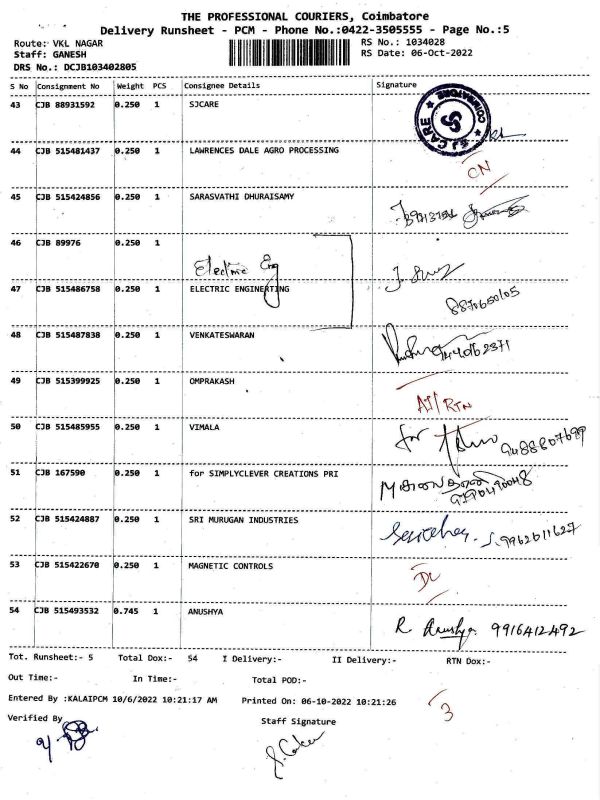 THE PROFESSIONAL COURIERS, Coimbatore
Delivery Runsheet - PCM - Phone No.:0422-3505555 - Page No.:5
Route: VKL NAGAR RS No.: 1034028
Staff: GANESH RS Date: 06-Oct-2022
DRS No.: DCJB103402805
S No Consignment No Weight PCS Consignee Details Signature
43 CJB 88931592 0.250 1 SJCARE
SJ CARE COIMBATORE
44 CJB 515481437 0.250 1 LAWRENCES DALE AGRO PROCESSING
CN
45 CJB 515424856 0.250 1 SARASVATHI DHURAISAMY
46 CJB 89976 0.250 1
Electric Eng
47 CJB 515486758 0.250 1 ELECTRIC ENGINERTING
8870650105
48 CJB 515487838 0.250 1 VENKATESWARAN
49 CJB 515399925 0.250 1 OMPRAKASH
AI/RTN
50 CJB 515485955 0.250 1 VIMALA
for
51 CJB 167590 0.250 1 for SIMPLYCLEVER CREATIONS PRI
52 CJB 515424887 0.250 1 SRI MURUGAN INDUSTRIES
9962011627
53 CJB 515422670 0.250 1 MAGNETIC CONTROLS
DL
54 CJB 515493532 0.745 1 ANUSHYA
R Anushya 9916412492
Tot. Runsheet:- 5 Total Dox:- 54 I Delivery:- II Delivery:- RTN Dox:-
Out Time:- In Time:- Total POD:-
Entered By :KALAIPCM 10/6/2022 10:21:17 AM Printed On: 06-10-2022 10:21:26
3
Verified By Staff Signature